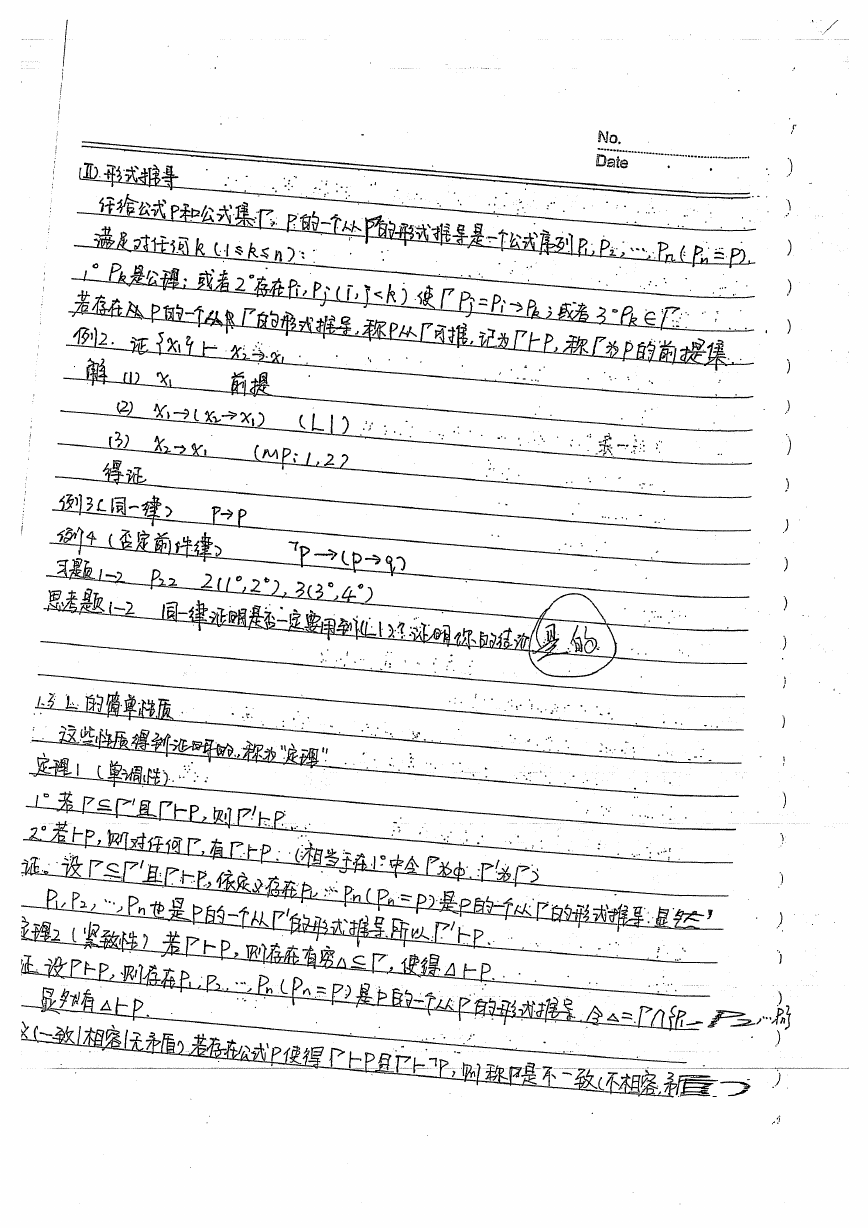 No.
Date
(II) 形式推导
任给公式P和公式集Γ，P的一个从Γ的形式推导是一个公式序列P₁, P₂, …, Pₙ (Pₙ=P),
满足对任何k (1≤k≤n):
1° Pₖ是公理；或者2°存在Pᵢ, Pⱼ (i, j<k) 使「Pⱼ=Pᵢ→Pₖ；或者3° Pₖ∈Γ
若存在从P的一个从Γ的形式推导，称P从Γ可推，记为Γ⊢P，称Γ为P的前提集.
例2. 证{x₁}⊢ x₂→x₁
解 (1) x₁ 前提
(2) x₁→(x₂→x₁) (L1)
(3) x₂→x₁ (MP: 1, 2)
得证
例3 (同一律) P→P
例4 (否定前件律) ¬P→(P→q)
习题1-2 P22 2(1°, 2°), 3(3°, 4°)
思考题1-2 同一律证明是否一定要用到(L1)？证明你的结论 是的.
1.3 L 的简单性质
这些性质得到证明的，称为“定理”
定理1 (单调性)
1° 若Γ⊆Γ'且Γ⊢P, 则Γ'⊢P.
2° 若⊢P, 则对任何Γ, 有Γ⊢P. (相当于在1°中令Γ为φ, Γ'为Γ)
证。设Γ⊆Γ'且Γ⊢P, 依定义存在P₁ … Pₙ (Pₙ=P) 是P的一个从Γ的形式推导. 显然,
P₁, P₂, …, Pₙ也是P的一个从Γ'的形式推导. 所以Γ'⊢P.
定理2 (紧致性) 若Γ⊢P, 则存在有穷Δ⊆Γ, 使得Δ⊢P.
证. 设Γ⊢P, 则存在P₁, P₂, …, Pₙ (Pₙ=P) 是P的一个从Γ的形式推导. 令Δ=Γ∩{P₁, P₂, …Pₙ}
显然有Δ⊢P.
义(一致/相容/无矛盾) 若存在公式P使得Γ⊢P且Γ⊢¬P, 则称Γ是不一致(不相容, 矛盾)